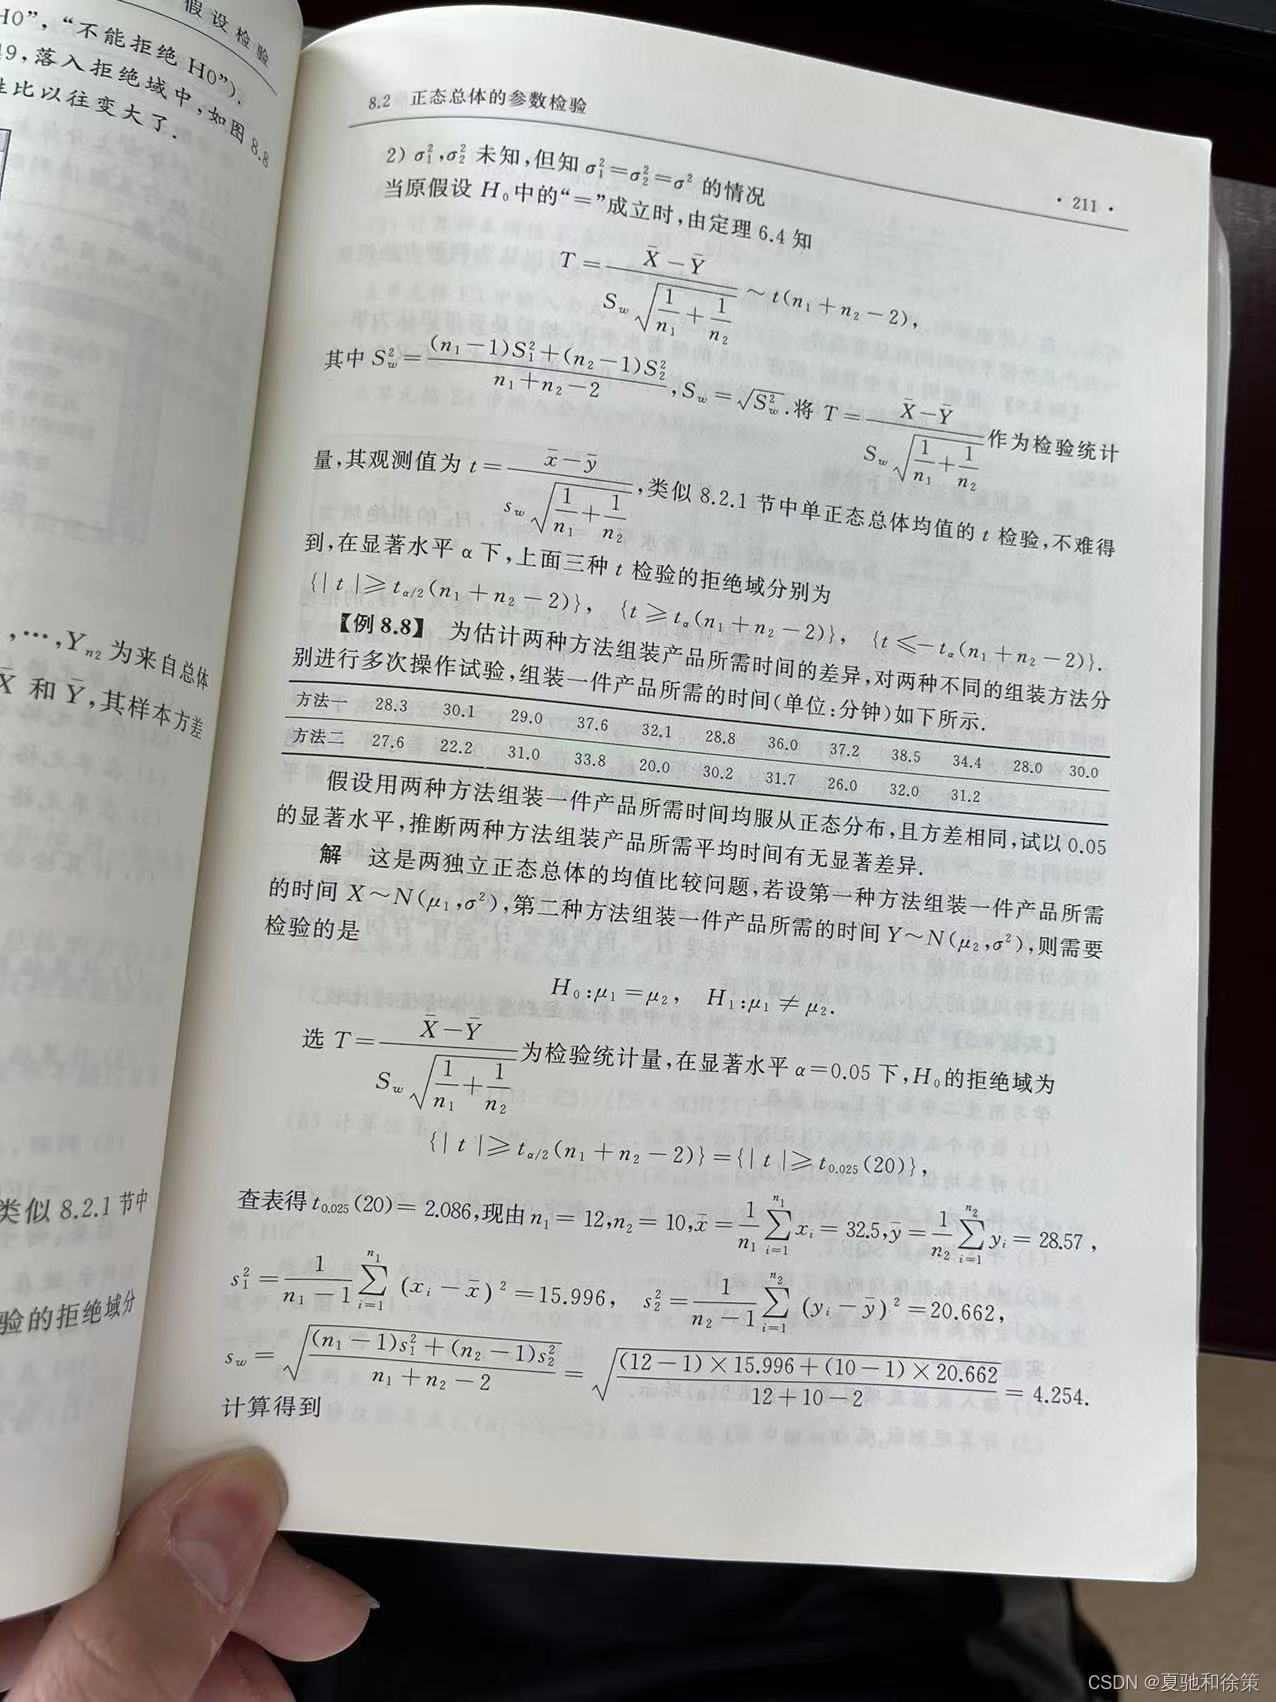 假设检验
H0”,“不能拒绝 H0”).
49,落入拒绝域中,如图 8.8
性比以往变大了.
,…,Yn2 为来自总体
X̄ 和 Ȳ,其样本方差
类似 8.2.1 节中
验的拒绝域分
8.2 正态总体的参数检验
· 211 ·
2) σ₁²,σ₂² 未知,但知 σ₁²=σ₂²=σ² 的情况
当原假设 H₀ 中的“=”成立时,由定理 6.4 知
T = (X̄ − Ȳ) / (S_w √(1/n₁ + 1/n₂)) ~ t(n₁+n₂−2),
其中 S_w² = ((n₁−1)S₁²+(n₂−1)S₂²) / (n₁+n₂−2), S_w = √(S_w²). 将 T = (X̄−Ȳ) / (S_w √(1/n₁ + 1/n₂)) 作为检验统计
量,其观测值为 t = (x̄−ȳ) / (s_w √(1/n₁ + 1/n₂)),类似 8.2.1 节中单正态总体均值的 t 检验,不难得
到,在显著水平 α 下,上面三种 t 检验的拒绝域分别为
{| t |≥t_{α/2}(n₁+n₂−2)}, {t≥t_α(n₁+n₂−2)}, {t≤−t_α(n₁+n₂−2)}.
【例 8.8】 为估计两种方法组装产品所需时间的差异,对两种不同的组装方法分
别进行多次操作试验,组装一件产品所需的时间(单位:分钟)如下所示.
方法一 28.3 30.1 29.0 37.6 32.1 28.8 36.0 37.2 38.5 34.4 28.0 30.0
方法二 27.6 22.2 31.0 33.8 20.0 30.2 31.7 26.0 32.0 31.2
假设用两种方法组装一件产品所需时间均服从正态分布,且方差相同,试以 0.05
的显著水平,推断两种方法组装产品所需平均时间有无显著差异.
解 这是两独立正态总体的均值比较问题,若设第一种方法组装一件产品所需
的时间 X~N(μ₁,σ²),第二种方法组装一件产品所需的时间 Y~N(μ₂,σ²),则需要
检验的是
H₀:μ₁=μ₂, H₁:μ₁≠μ₂.
选 T = (X̄−Ȳ) / (S_w √(1/n₁ + 1/n₂)) 为检验统计量,在显著水平 α=0.05 下,H₀的拒绝域为
{| t |≥t_{α/2}(n₁+n₂−2)}={| t |≥t_{0.025}(20)},
查表得 t_{0.025}(20)= 2.086,现由 n₁= 12,n₂= 10, x̄ = (1/n₁) ∑_{i=1}^{n₁} x_i = 32.5, ȳ = (1/n₂) ∑_{i=1}^{n₂} y_i = 28.57 ,
s₁² = (1/(n₁−1)) ∑_{i=1}^{n₁} (x_i−x̄)² =15.996, s₂² = (1/(n₂−1)) ∑_{i=1}^{n₂} (y_i−ȳ)² =20.662,
s_w = √(((n₁−1)s₁²+(n₂−1)s₂²) / (n₁+n₂−2)) = √(((12−1)×15.996+(10−1)×20.662) / (12+10−2)) = 4.254.
计算得到
CSDN @夏驰和徐策